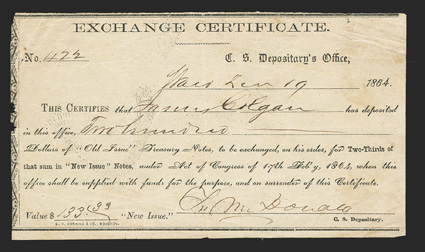 EXCHANGE CERTIFICATE.
No. 472 C. S. Depositary's Office,
19 1864.
THIS CERTIFIES that James Colgan has deposited
in this office, Two hundred
Dollars of "Old Issue" Treasury Notes, to be exchanged, on his order, for Two-Thirds of
that sum in "New Issue" Notes, under Act of Congress of 17th Feb'y, 1864, when this
office shall be supplied with funds for the purpose, and on surrender of this Certificate.
Value $ 133.33 "New Issue." McDonald
C. S. Depositary.